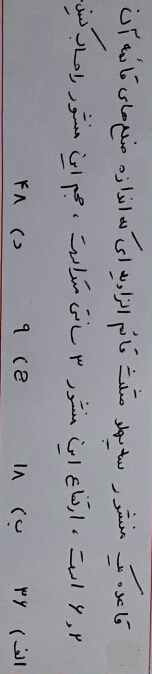 قاعده یک منشور سه پهلو مثلث قائم الزاویه ای که اندازه ضلع های قائمه آن
۲ و ۶ است ، ارتفاع این منشور ۳ سانتی متر است ، حجم این منشور را حساب کنید.
الف) ۳۶ ب) ۱۸ ج) ۹ د) ۴۸